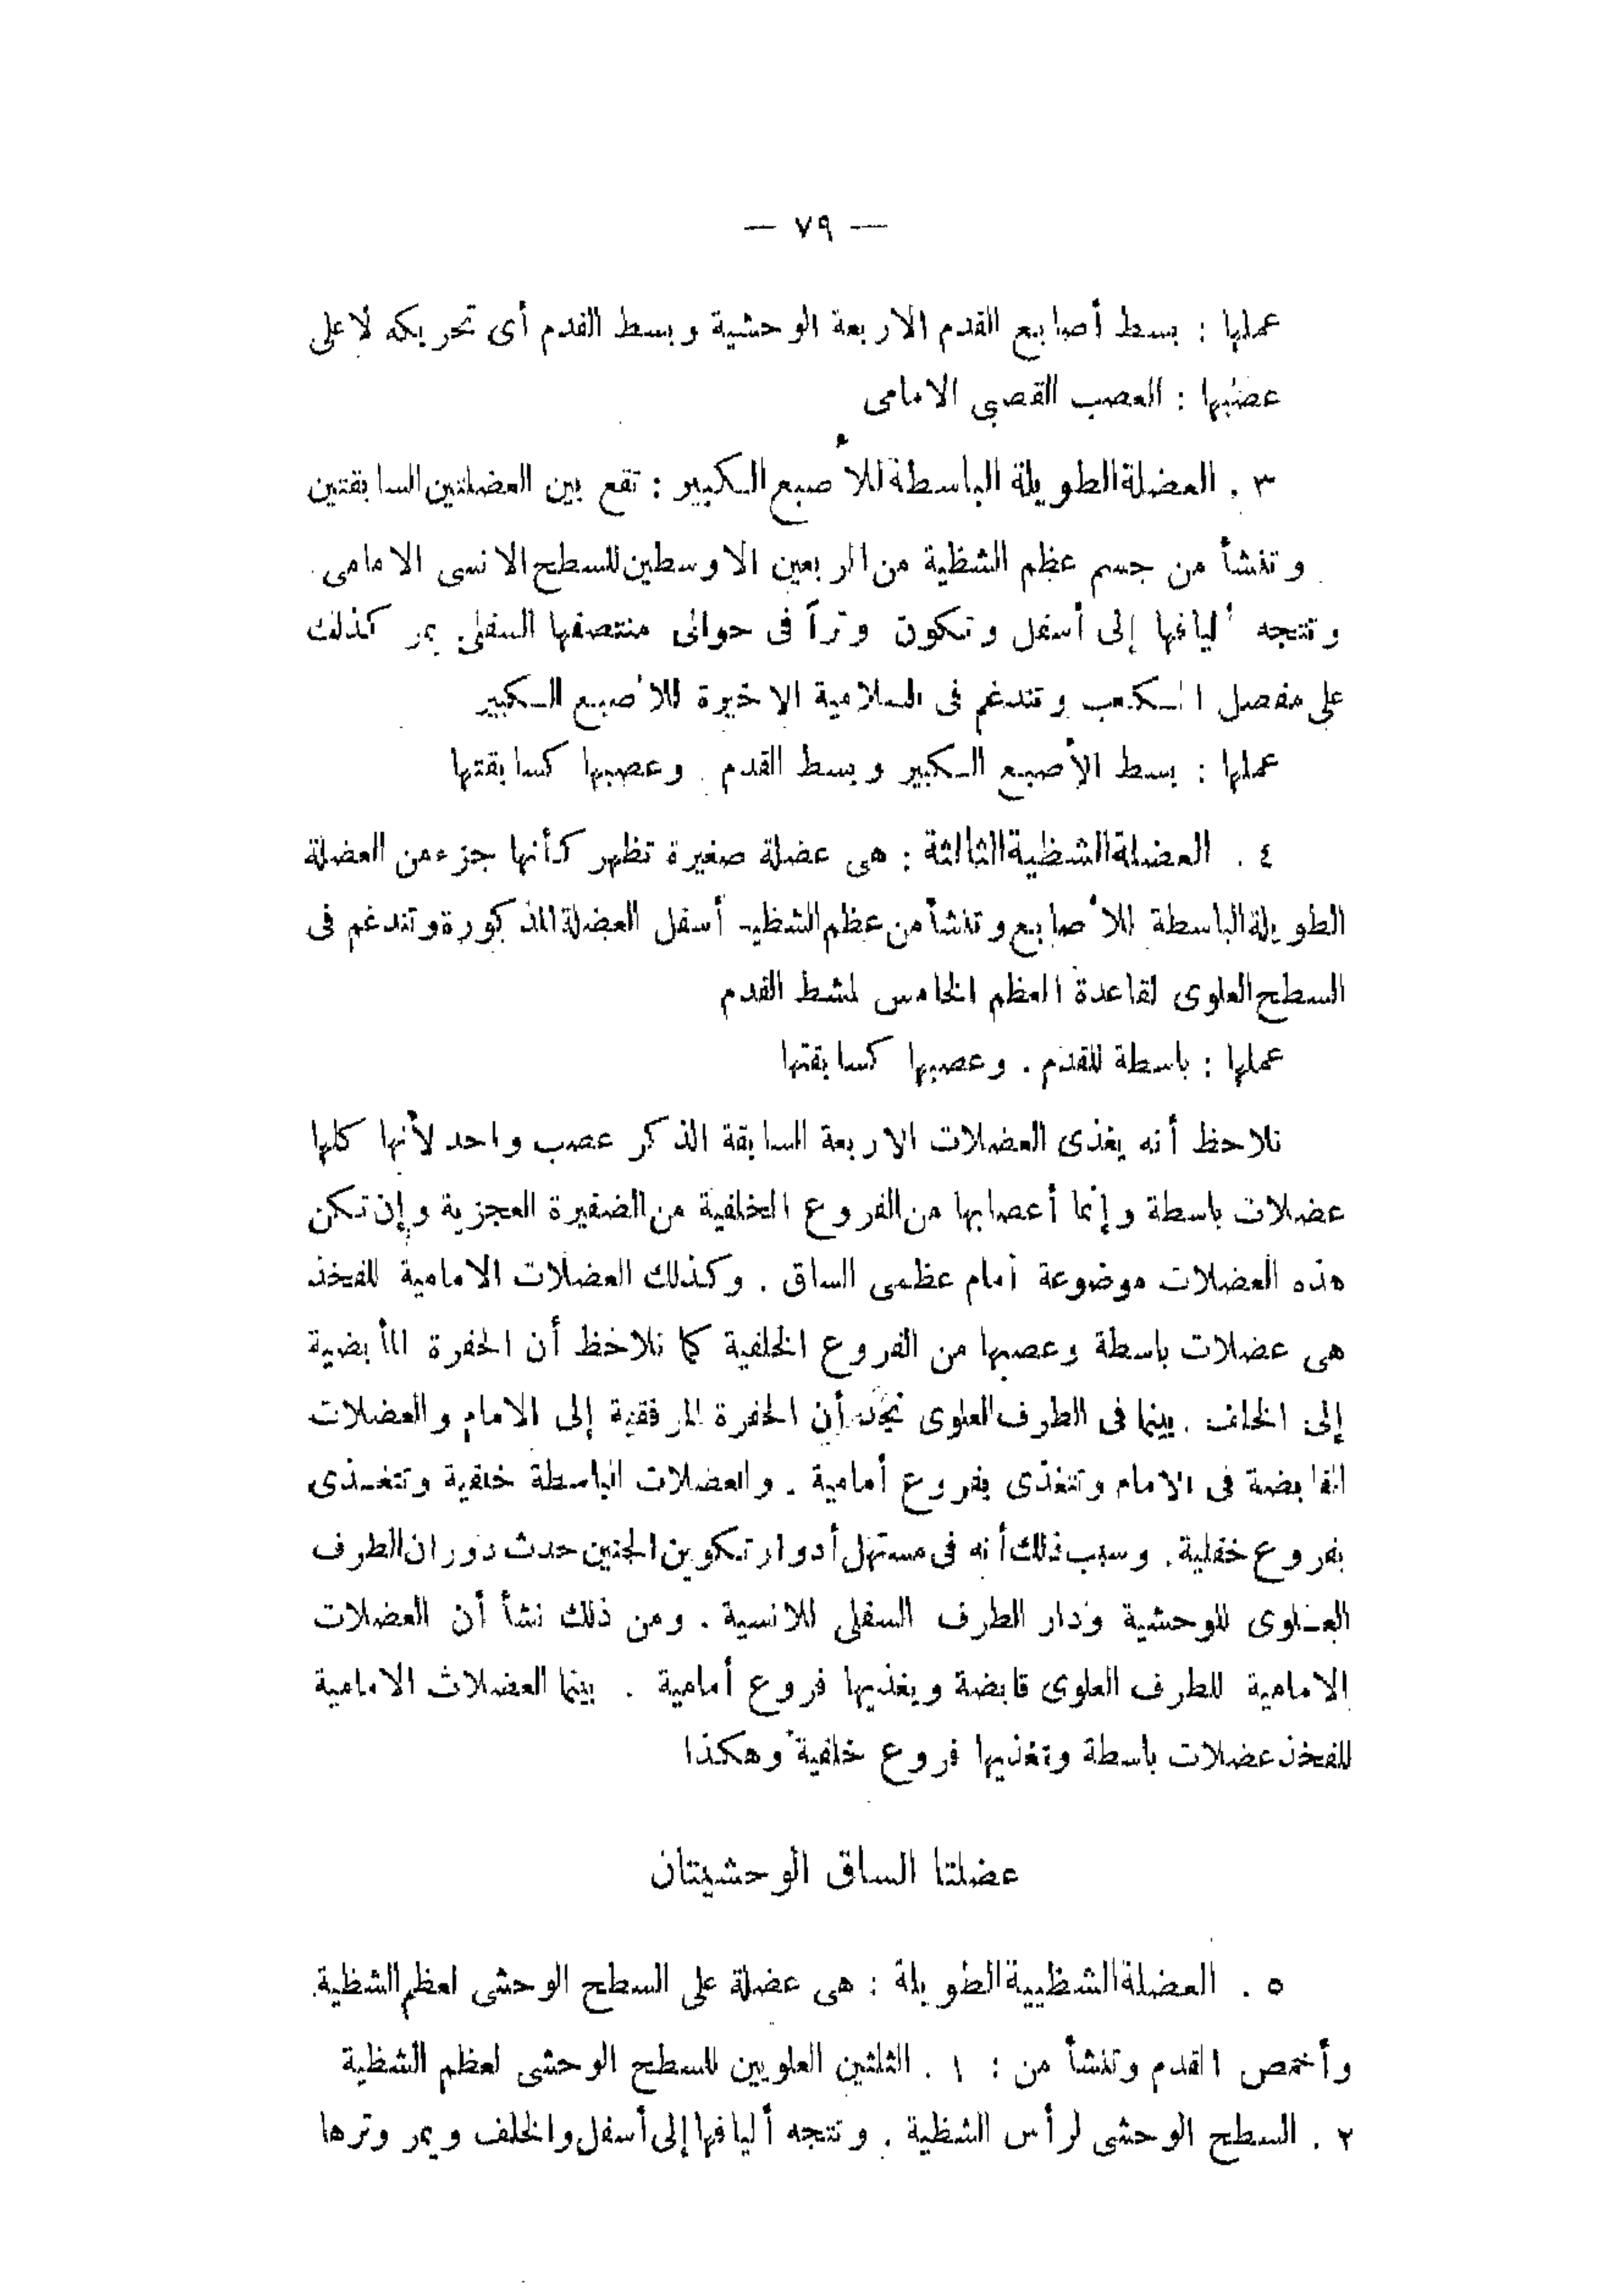 — ٧٩ —
عملها : بسط أصابع القدم الاربعة الوحشية وبسط القدم أى تحريكه لاعلى
عصبها : العصب القصبى الامامى
٣ . العضلة الطويلة الباسطة للأصبع الكبير : تقع بين العضلتين السابقتين
وتنشأ من جسم عظم الشظية من الربعين الاوسطين للسطح الانسى الامامى .
وتتجه أليافها إلى أسفل وتكون وتراً فى حوالى منتصفها السفلى يمر كذلك
على مفصل الكعب وتندغم فى السلامية الاخيرة للأصبع الكبير
عملها : بسط الأصبع الكبير وبسط القدم . وعصبها كسابقتها
٤ . العضلة الشظية الثالثة : هى عضلة صغيرة تظهر كأنها جزء من العضلة
الطويلة الباسطة للأصابع وتنشأ من عظم الشظية أسفل العضلة المذكورة وتندغم فى
السطح العلوى لقاعدة العظم الخامس لمشط القدم
عملها : باسطة للقدم . وعصبها كسابقتها
نلاحظ أنه يغذى العضلات الاربعة السابقة الذكر عصب واحد لأنها كلها
عضلات باسطة وإنما أعصابها من الفروع الخلفية من الضفيرة العجزية وإن تكن
هذه العضلات موضوعة أمام عظمى الساق . وكذلك العضلات الامامية للفخذ
هى عضلات باسطة وعصبها من الفروع الخلفية كما نلاحظ أن الحفرة المأبضية
إلى الخلف . بينما فى الطرف العلوى نجد أن الحفرة المرفقية إلى الامام والعضلات
القابضة فى الامام وتتغذى بفروع أمامية . والعضلات الباسطة خلفية وتتغذى
بفروع خفلية . وسبب ذلك أنه فى مستهل أدوار تكوين الجنين حدث دوران الطرف
العلوى للوحشية ودار الطرف السفلى للانسية . ومن ذلك نشأ أن العضلات
الامامية للطرف العلوى قابضة ويغذيها فروع أمامية . بينما العضلات الامامية
للفخذ عضلات باسطة وتغذيها فروع خلفية وهكذا
عضلتا الساق الوحشيتان
٥ . العضلة الشظيية الطويلة : هى عضلة على السطح الوحشى لعظم الشظية
وأخمص القدم وتنشأ من : ١ . الثلثين العلويين للسطح الوحشى لعظم الشظية
٢ . السطح الوحشى لرأس الشظية . وتتجه أليافها إلى أسفل والخلف ويمر وترها